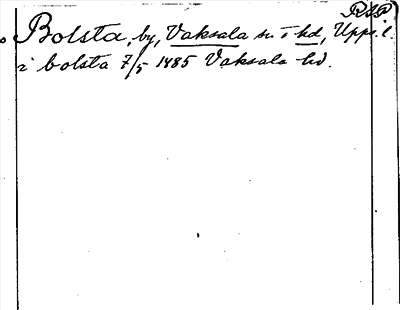 RSP
Bolsta, by, Vaksala sn o hd, Upps. l.
i bolsta 7/5 1485 Vaksala hd.